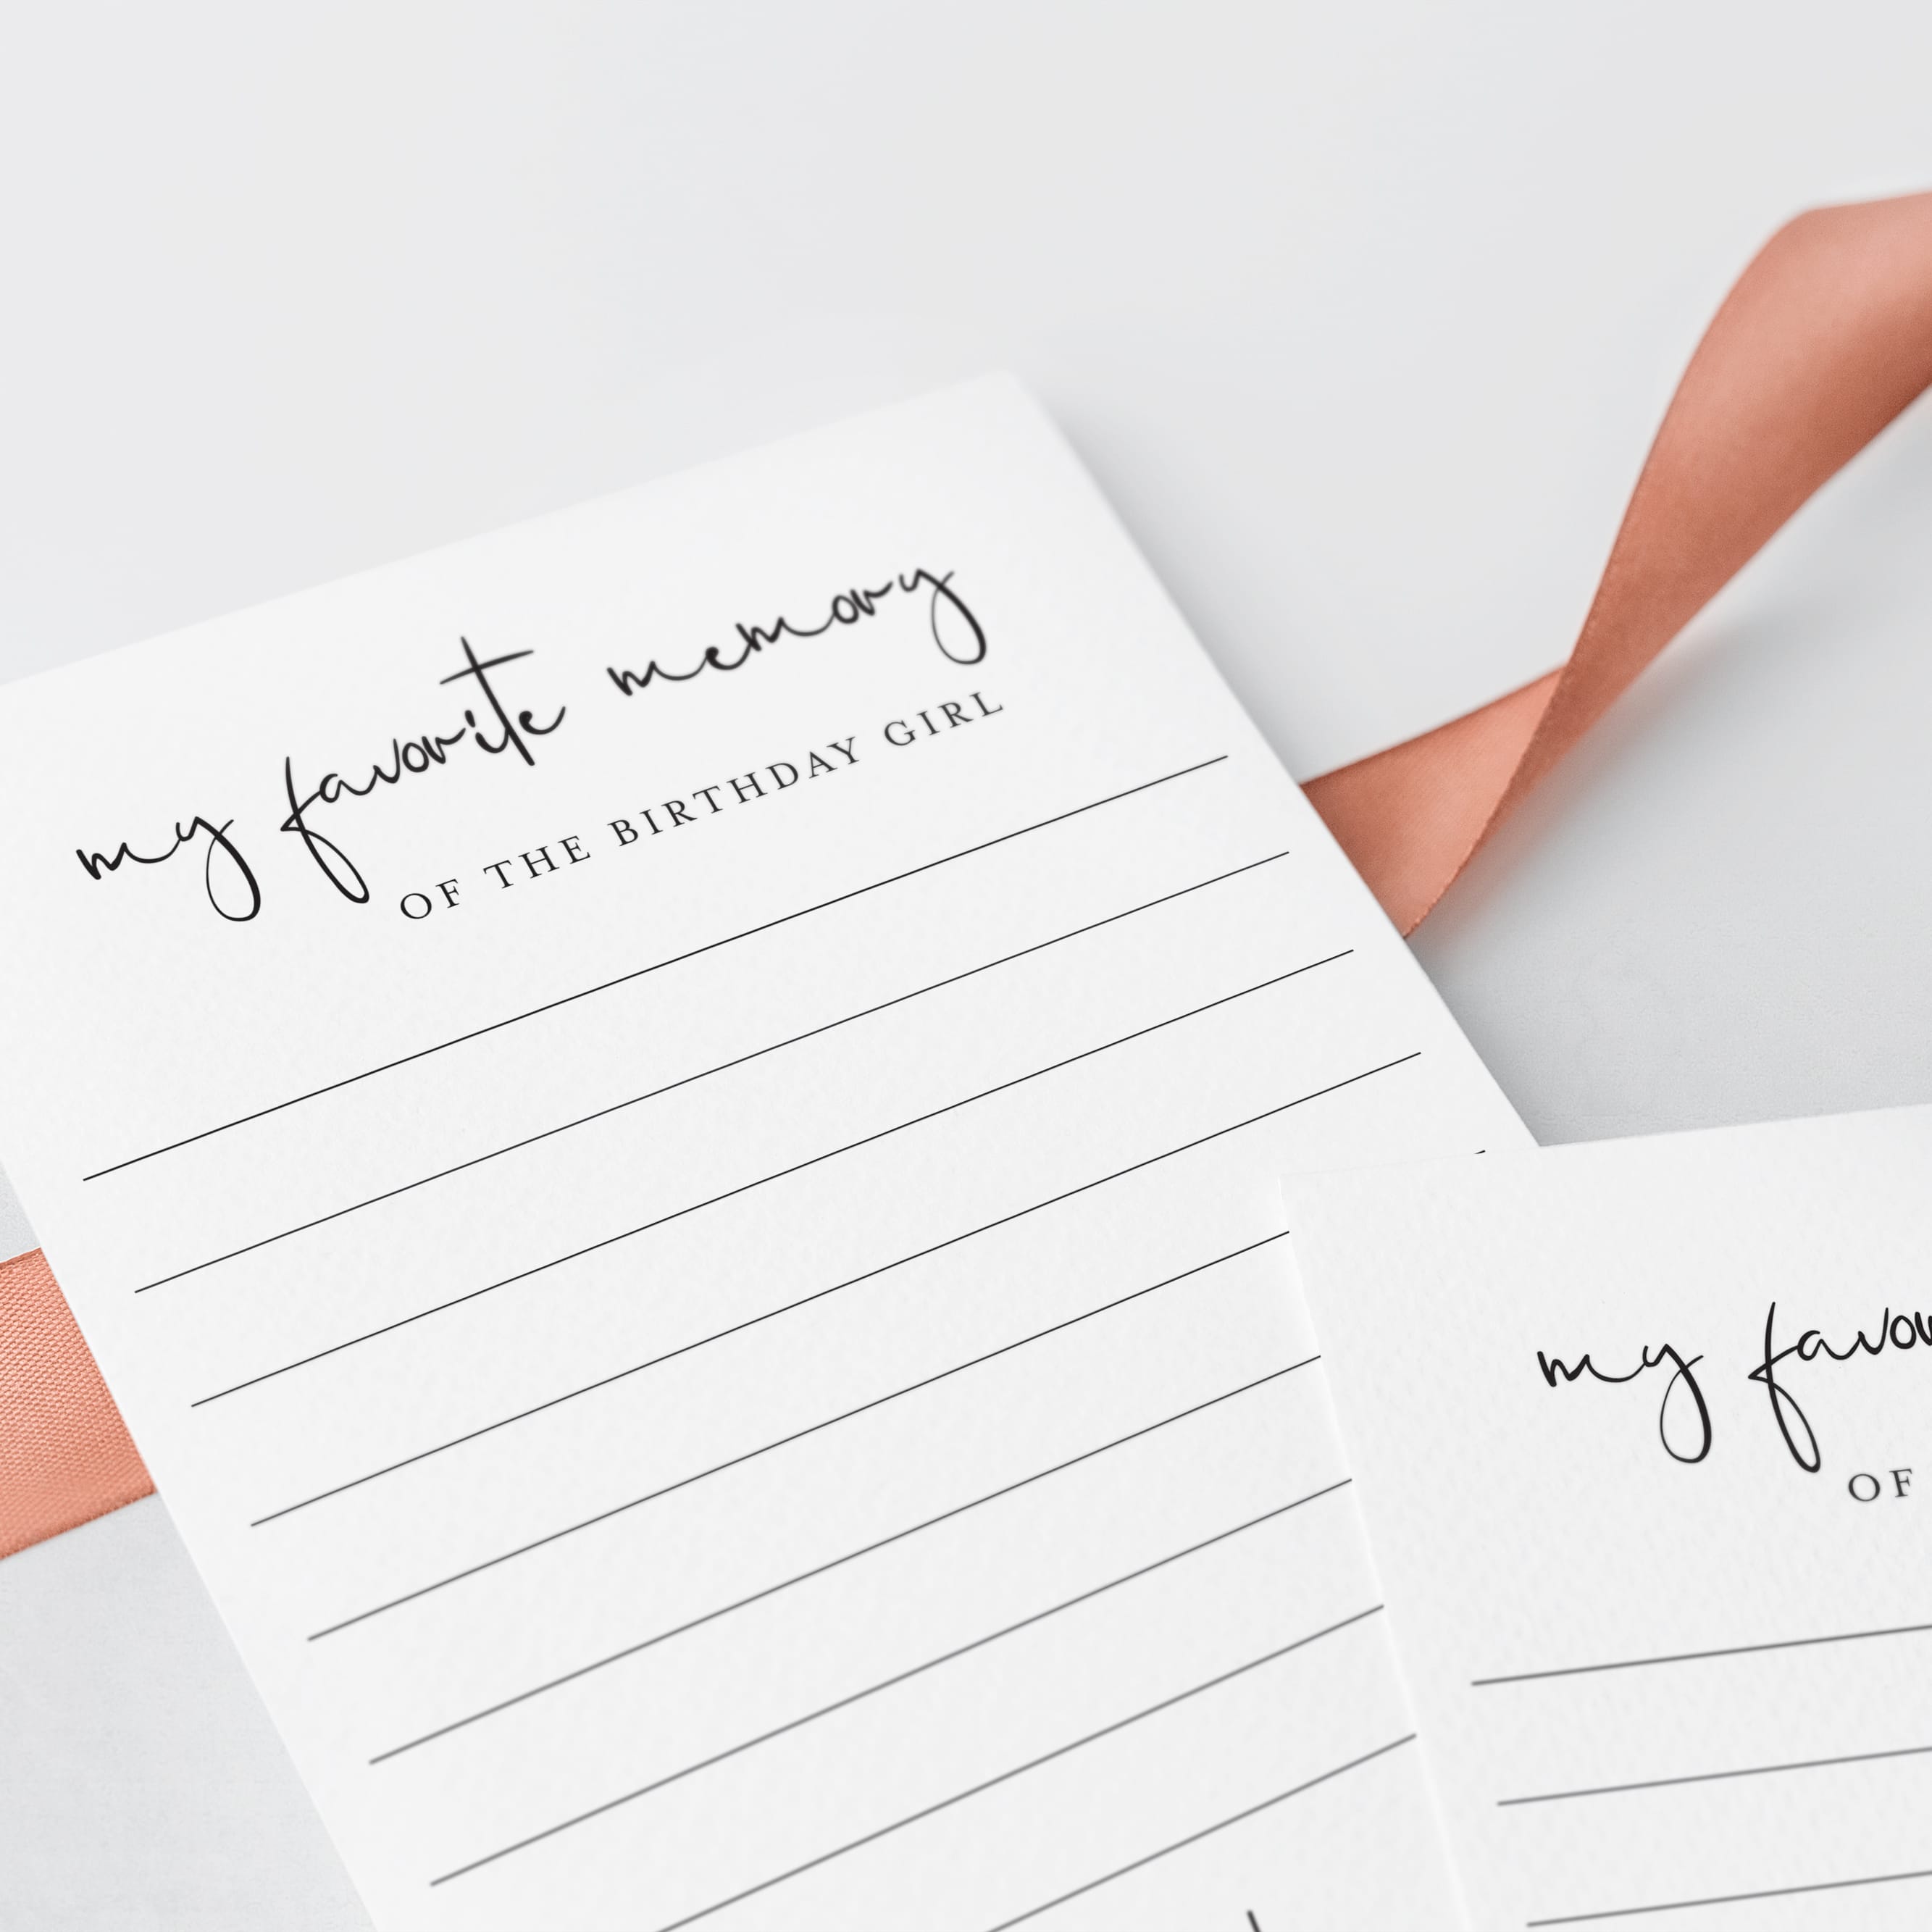 my favorite memory
OF THE BIRTHDAY GIRL
my favor
OF